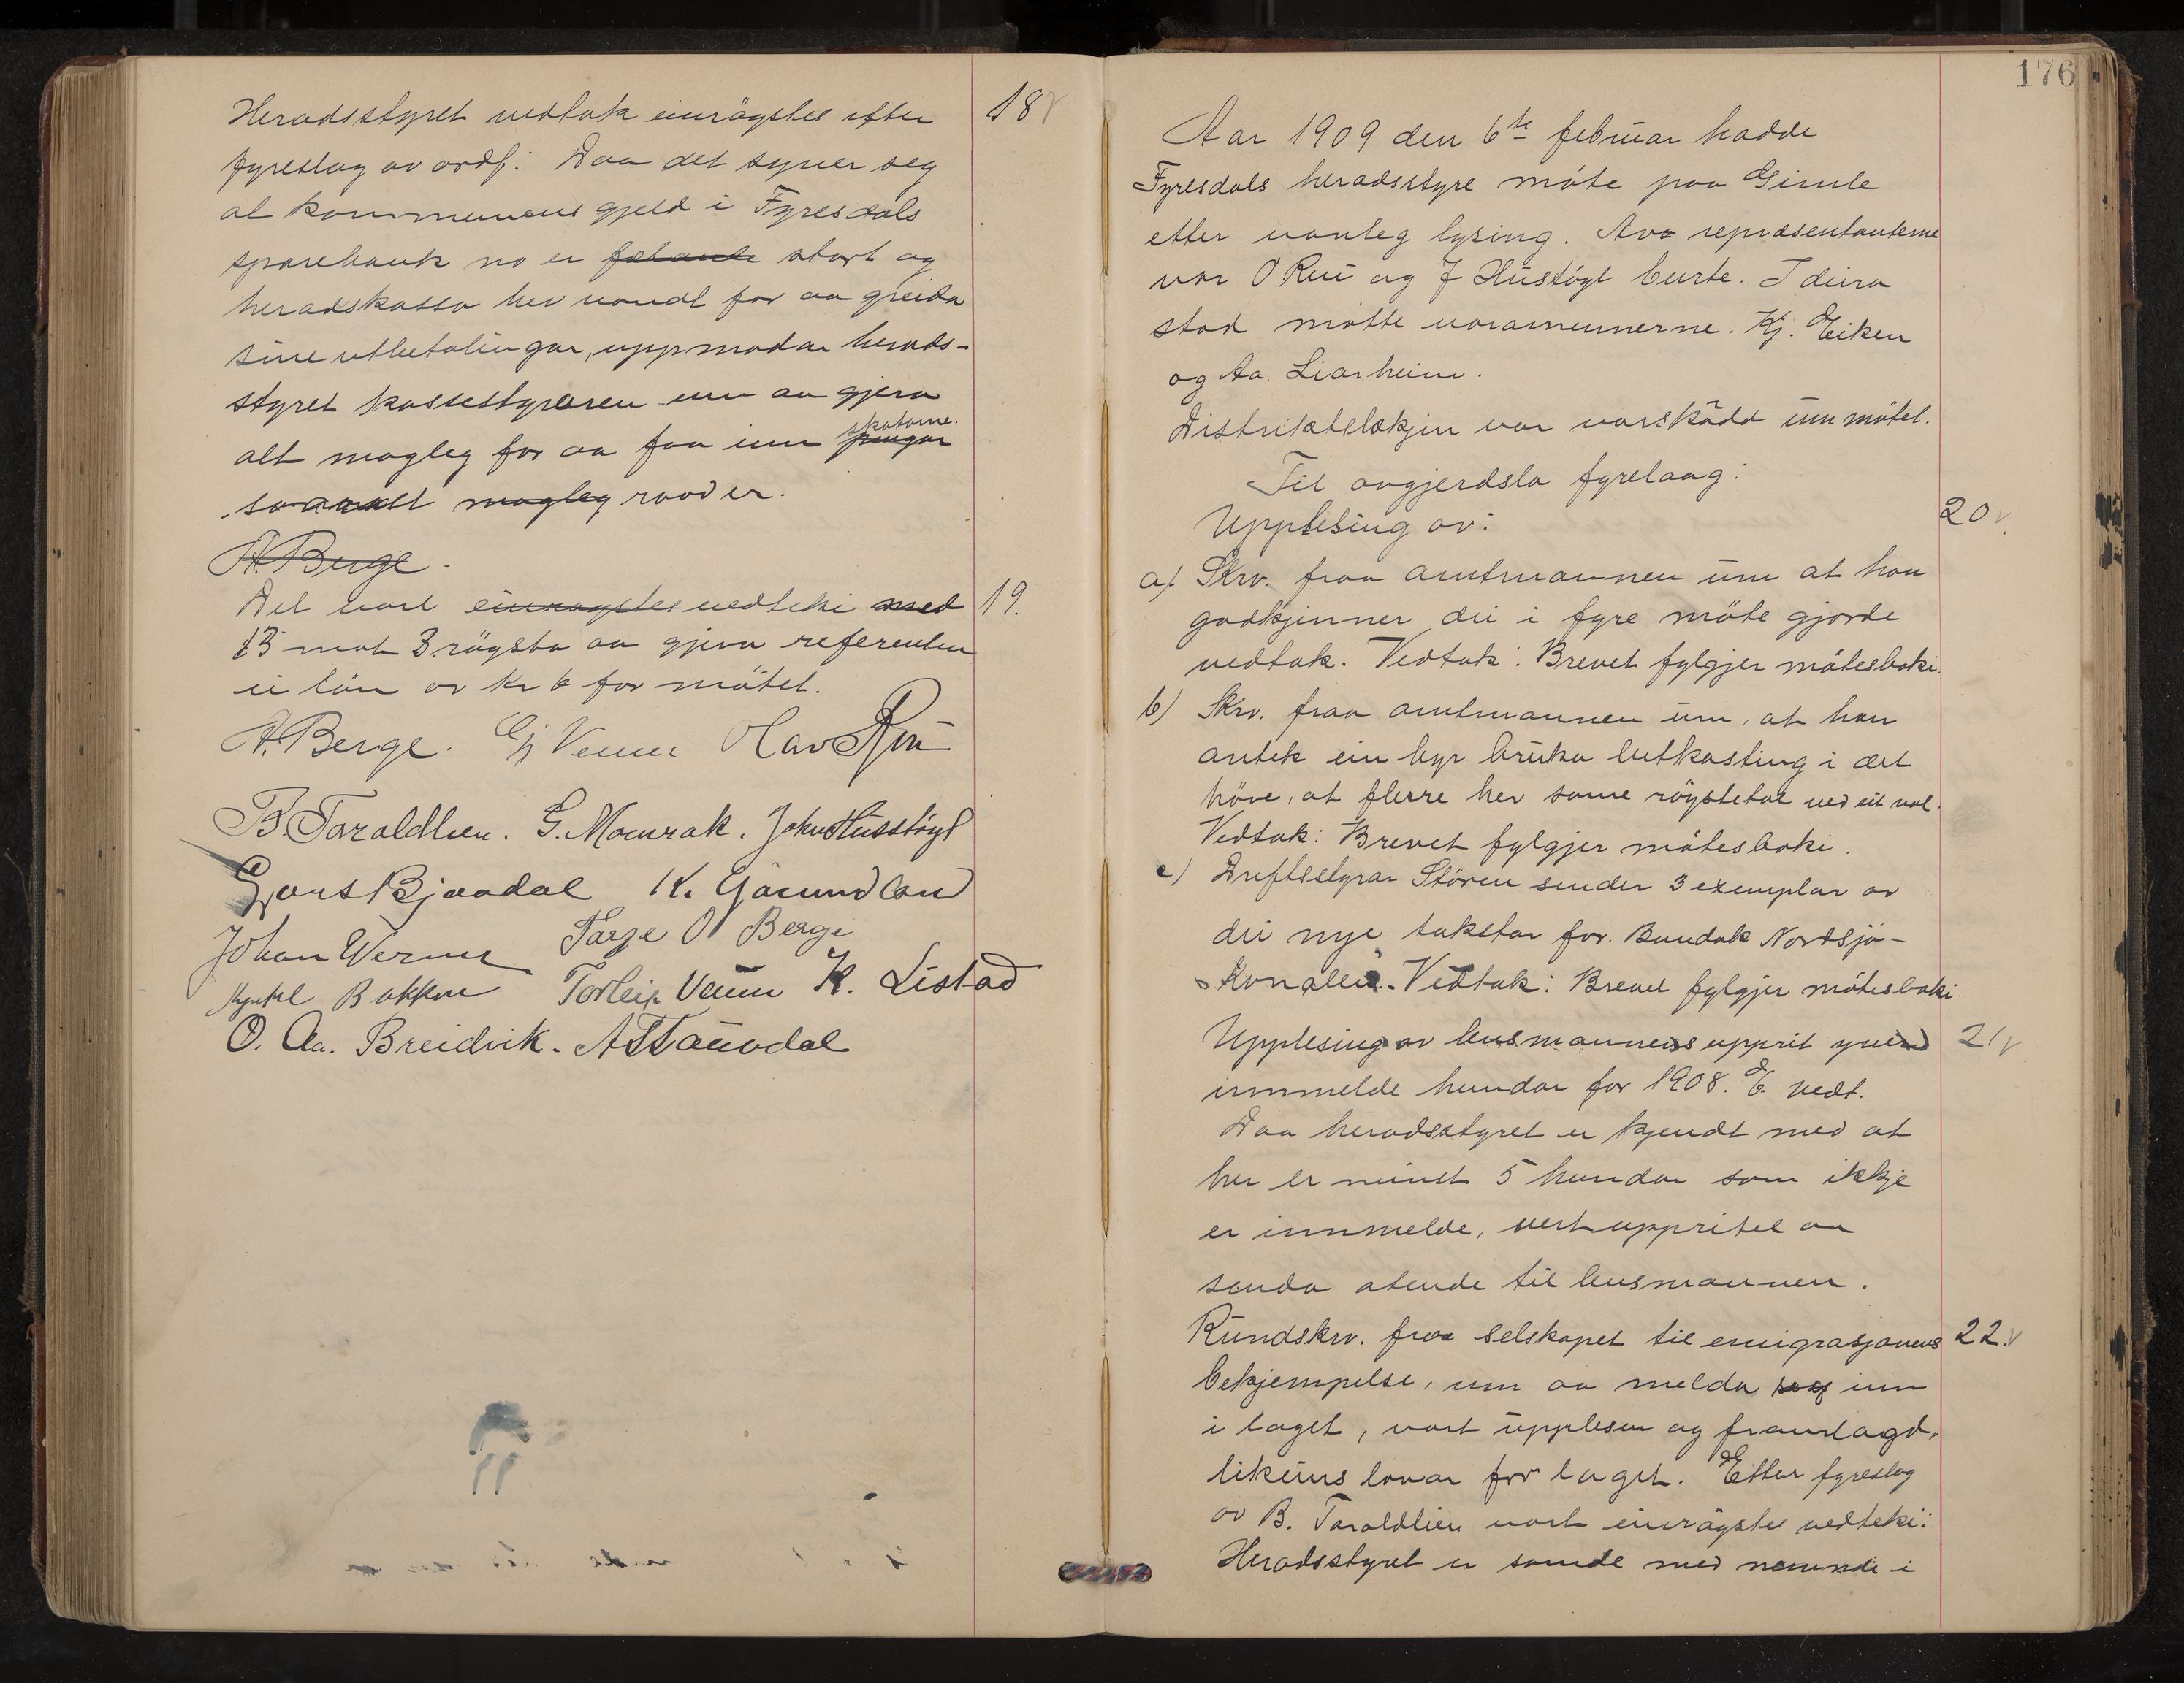 Heradsstyret vedtok einrøystes etter 18
fyreslag av ordf: Daa det syner seg
at kommunens gjeld i Fyresdals
sparebank no er stort og
heradskassa hev vondt for aa greida
sine utbetalingar, uppmodar herads-
styret kassestyraren um aa gjera
skatarne.
alt mogleg for aa faa inn pengar
mogleg raad er.
A. Berge.
Det vart einrøystes vedteki med 19.
13 mot 3 røyster aa gjeva referenten
ei løn av Kr 6 for møtet.
A. Berge. Gj Venum Olav Rui
B Taraldlien. G. Momrak. John Husstøyl
Lars Bjaadal K. Gaumdland
Johan Verum Tarje O Berge
Kyntel Bakken Torleiv Veum K. Listad
O. Aa. Breidvik. A T Taundal
176
Aar 1909 den 6te februar hadde
Fyresdals heradsstyre møte paa Gimle
etter vanleg lysing. Av representanterne
var O Rui og J Hustøyl burte. I deira
stad møtte varamennerne. Kj. Eiken
og Aa. Liarheim.
Distriktslækjin var varskødd um møtet.
Til avgjerdsla fyrelaag:
Upplesing av: 20
a) Skrv. fraa amtmannen um at han
godkjenner dei i fyre møte gjorde
vedtak. Vedtak: Brevet fylgjer møtesboki.
b) Skrv. fraa amtmannen um, at han
antek ein byr bruka lutkasting i det
høve, at fleire hev same røystetal ved eit val.
Vedtak: Brevet fylgjer møtesboki.
c) Driftsstyrar Støren sender 3 exemplar av
dei nye takstar for Bandak Nordsjø-
Kanalen. Vedtak: Brevet fylgjer møtesboki
Upplesing av lensmannens upprit yver 21
innmelde hundar for 1908. E. vedt.
Daa heradsstyret er kjendt med at
her er minst 5 hundar som ikkje
er innmelde, vert uppritet aa
senda atende til lensmannen.
Rundskrv. fraa selskapet til emigrasjonens 22.
bekjempelse, um aa melda seg inn
i laget, vart upplesen og framlagd,
likeins lovar for laget. Etter fyreslag
av B. Taraldlien vart einrøystes vedteki:
Heradsstyret er samde med nemndi i